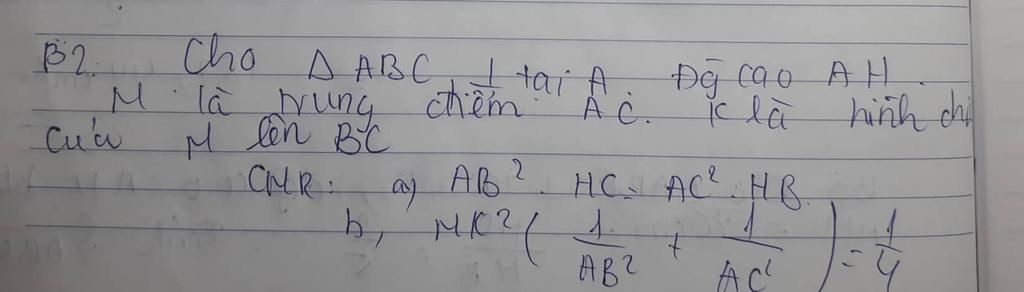 B2. Cho Δ ABC ⊥ tại A Đg cao AH.
M là trung điểm AC. K là hình chi
của M lên BC
CMR: a) AB². HC = AC². HB.
b, MK² ( 1/AB² + 1/AC² ) = 1/4